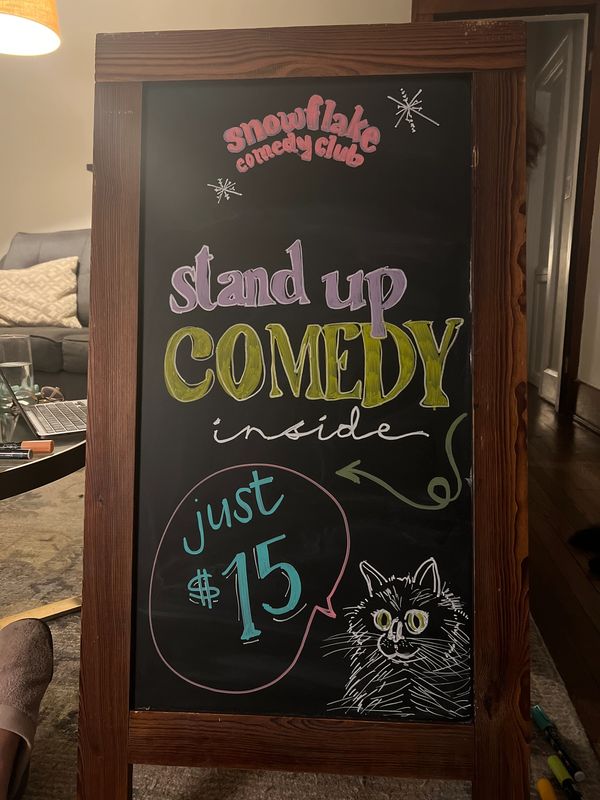 snowflake
comedy club
stand up
COMEDY
inside
just
$15